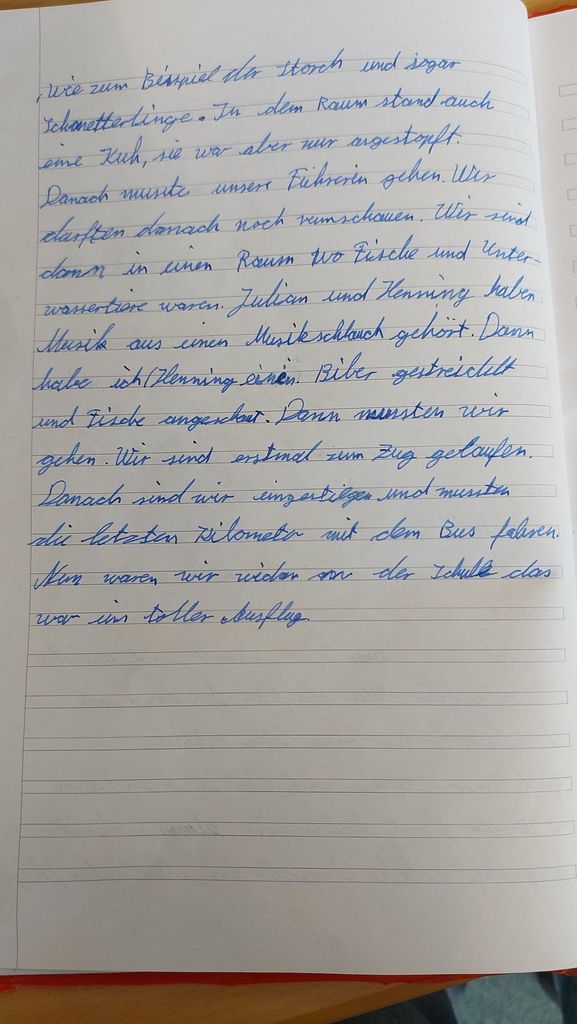 Wie zum Beispiel der Storch und sogar
Schmetterlinge. In dem Raum stand auch
eine Kuh, sie war aber nur ausgestopft.
Danach musste unsere Führerin gehen. Wir
durften danach noch rumschauen. Wir sind
dann in einen Raum wo Fische und Unter-
wassertiere waren. Julian und Henning haben
Musik aus einen Musikschlauch gehört. Dann
habe ich/Henning einen Biber gestreichelt
und Fische angeschaut. Dann mussten wir
gehen. Wir sind erstmal zum Zug gelaufen.
Danach sind wir eingestiegen und mussten
die letzten Kilometer mit dem Bus fahren.
Nun waren wir wieder an der Schule das
war ein toller Ausflug.